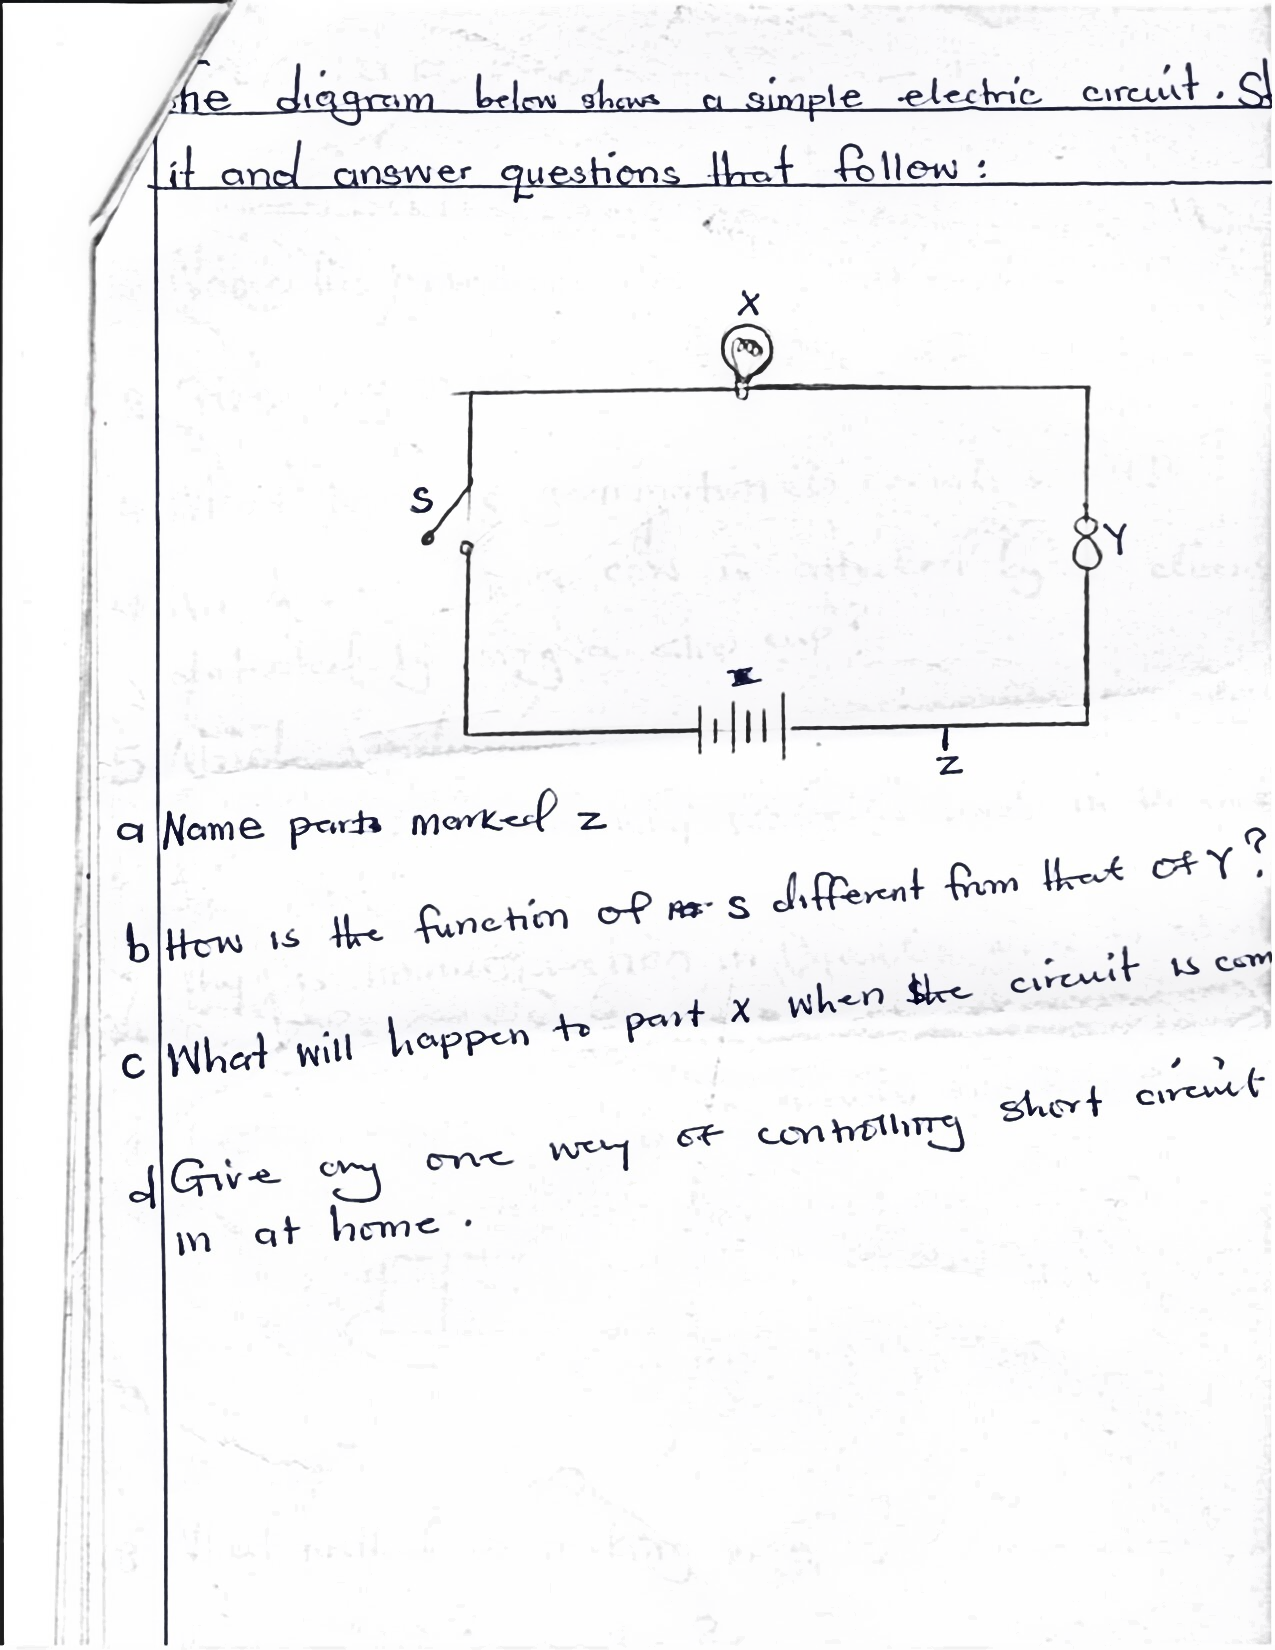 The diagram below shows a simple electric circuit. St
it and answer questions that follow:
X
S
Y
Z
a Name parts marked z
b How is the function of S different from that of Y?
c What will happen to part X when the circuit is com
d Give any one way of controlling short circuit
in at home.